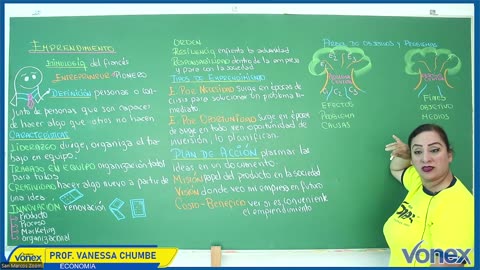 EMPRENDIMIENTO
ETIMOLOGÍA del francés
ENTREPRENEUR: PIONERO
DEFINICIÓN personas o con-
junto de personas que son capaces
de hacer algo que otros no hacen
CARACTERÍSTICAS
LIDERAZGO dirige, organiza el tra-
bajo en equipo.
TRABAJO EN EQUIPO organización todos
para todos
CREATIVIDAD hacer algo nuevo a partir de
una idea
INNOVACIÓN renovación
Producto
Proceso
Marketing
organizacional
ORDEN
RESILIENCIA enfrenta la adversidad
RESPONSABILIDAD dentro de la empresa
y para con la sociedad
TIPOS DE EMPRENDIMIENTO
E. POR NECESIDAD surge en épocas de
crisis para solucionar un problema in-
mediato
E. POR OPORTUNIDAD surge en épocas
de auge en todo ven oportunidad de
inversión, lo planifican.
PLAN DE ACCIÓN plasmar las
ideas en un documento.
MISIÓN papel del producto en la sociedad
VISIÓN donde veo mi empresa en futuro
COSTO-BENEFICIO ver si es conveniente
el emprendimiento
ÁRBOL DE OBJETIVOS y PROBLEMAS
E1
E2
C1
C2
C3
EFECTOS
PROBLEMA
CAUSAS
FINES
OBJETIVO
MEDIOS
Vonex
San Marcos Zoom
PROF. VANESSA CHUMBE
ECONOMÍA
vonex